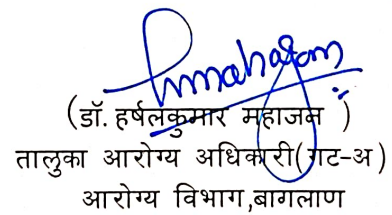 Hmahajan
(डॉ. हर्षलकुमार महाजन )
तालुका आरोग्य अधिकारी(गट-अ)
आरोग्य विभाग,बागलाण